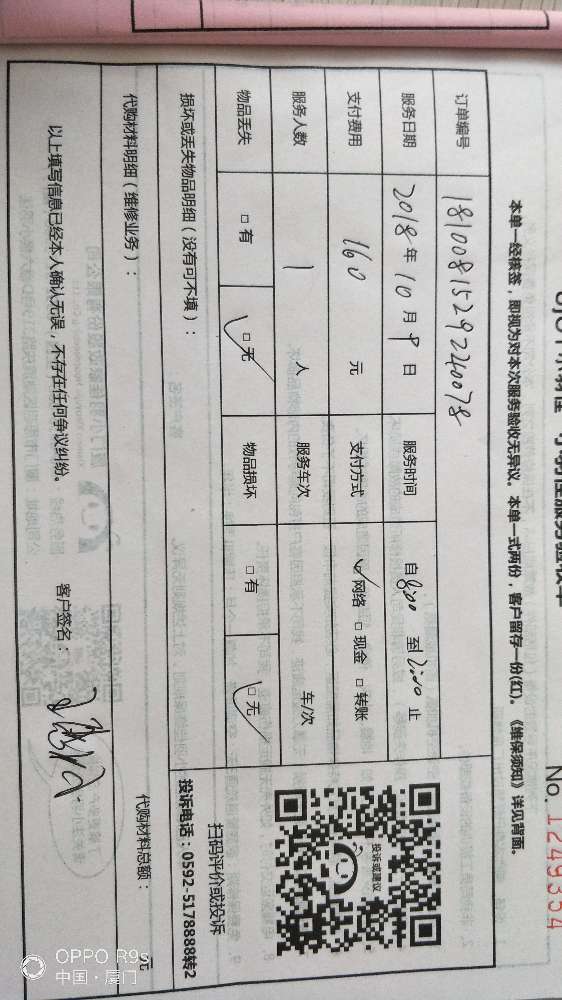 No. 1249354
本单一经核签，即视为对本次服务验收无异议。本单一式两份，客户留存一份(红)。《维保须知》详见背面。
订单编号 181008152922 0078
服务日期 2018年10月9日 服务时间 自8:00 至12:00 止
支付费用 160 元 支付方式 ☑网络 □现金 □转账
服务人数 1 人 服务车次 车/次
物品丢失 □有 ☑无 物品损坏 □有 ☑无
投诉或建议
扫码评价或投诉
投诉电话：0592-5178888转2
损坏或丢失物品明细（没有可不填）：
代购材料明细（维修业务）： 代购材料总额： 元
以上填写信息已经本人确认无误，不存在任何争议纠纷。 客户签名：
OPPO R9s
中国·厦门